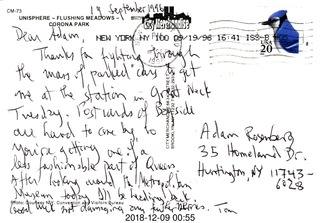 CM-73
19 September 1996
UNISPHERE - FLUSHING MEADOWS -
CORONA PARK
NEW YORK NY 100 09/19/96 16:41
20
Dear Adam,
Thanks for fighting through
the mass of parked cars to get
me at the station in Great Neck
Tuesday. Postcards of Bayside
are hard to come by so
You're getting one of a
less fashionable part of Queens.
After looking around the Metropolitan
Museum today I'll be heading
not damaging any
Tom
Adam Rosenberg
35 Homeland Dr.
Huntington, NY 11743-
6828
Photo: Courtesy NYC Convention and Visitors Bureau
2018-12-09 00:55